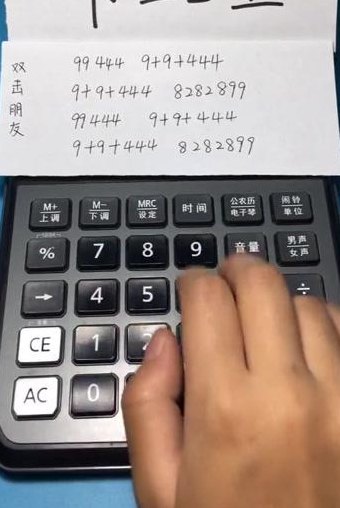 双击朋友
99 444 9+9+444
9+9+444 8282899
99444 9+9+444
9+9+444 8282899
M+ 上调 M- 下调 MRC 设定 时间 公农历 电子琴 闹铃 单位
% 7 8 9 音量 男声 女声
→ 4 5 ÷
CE 1 2
AC 0